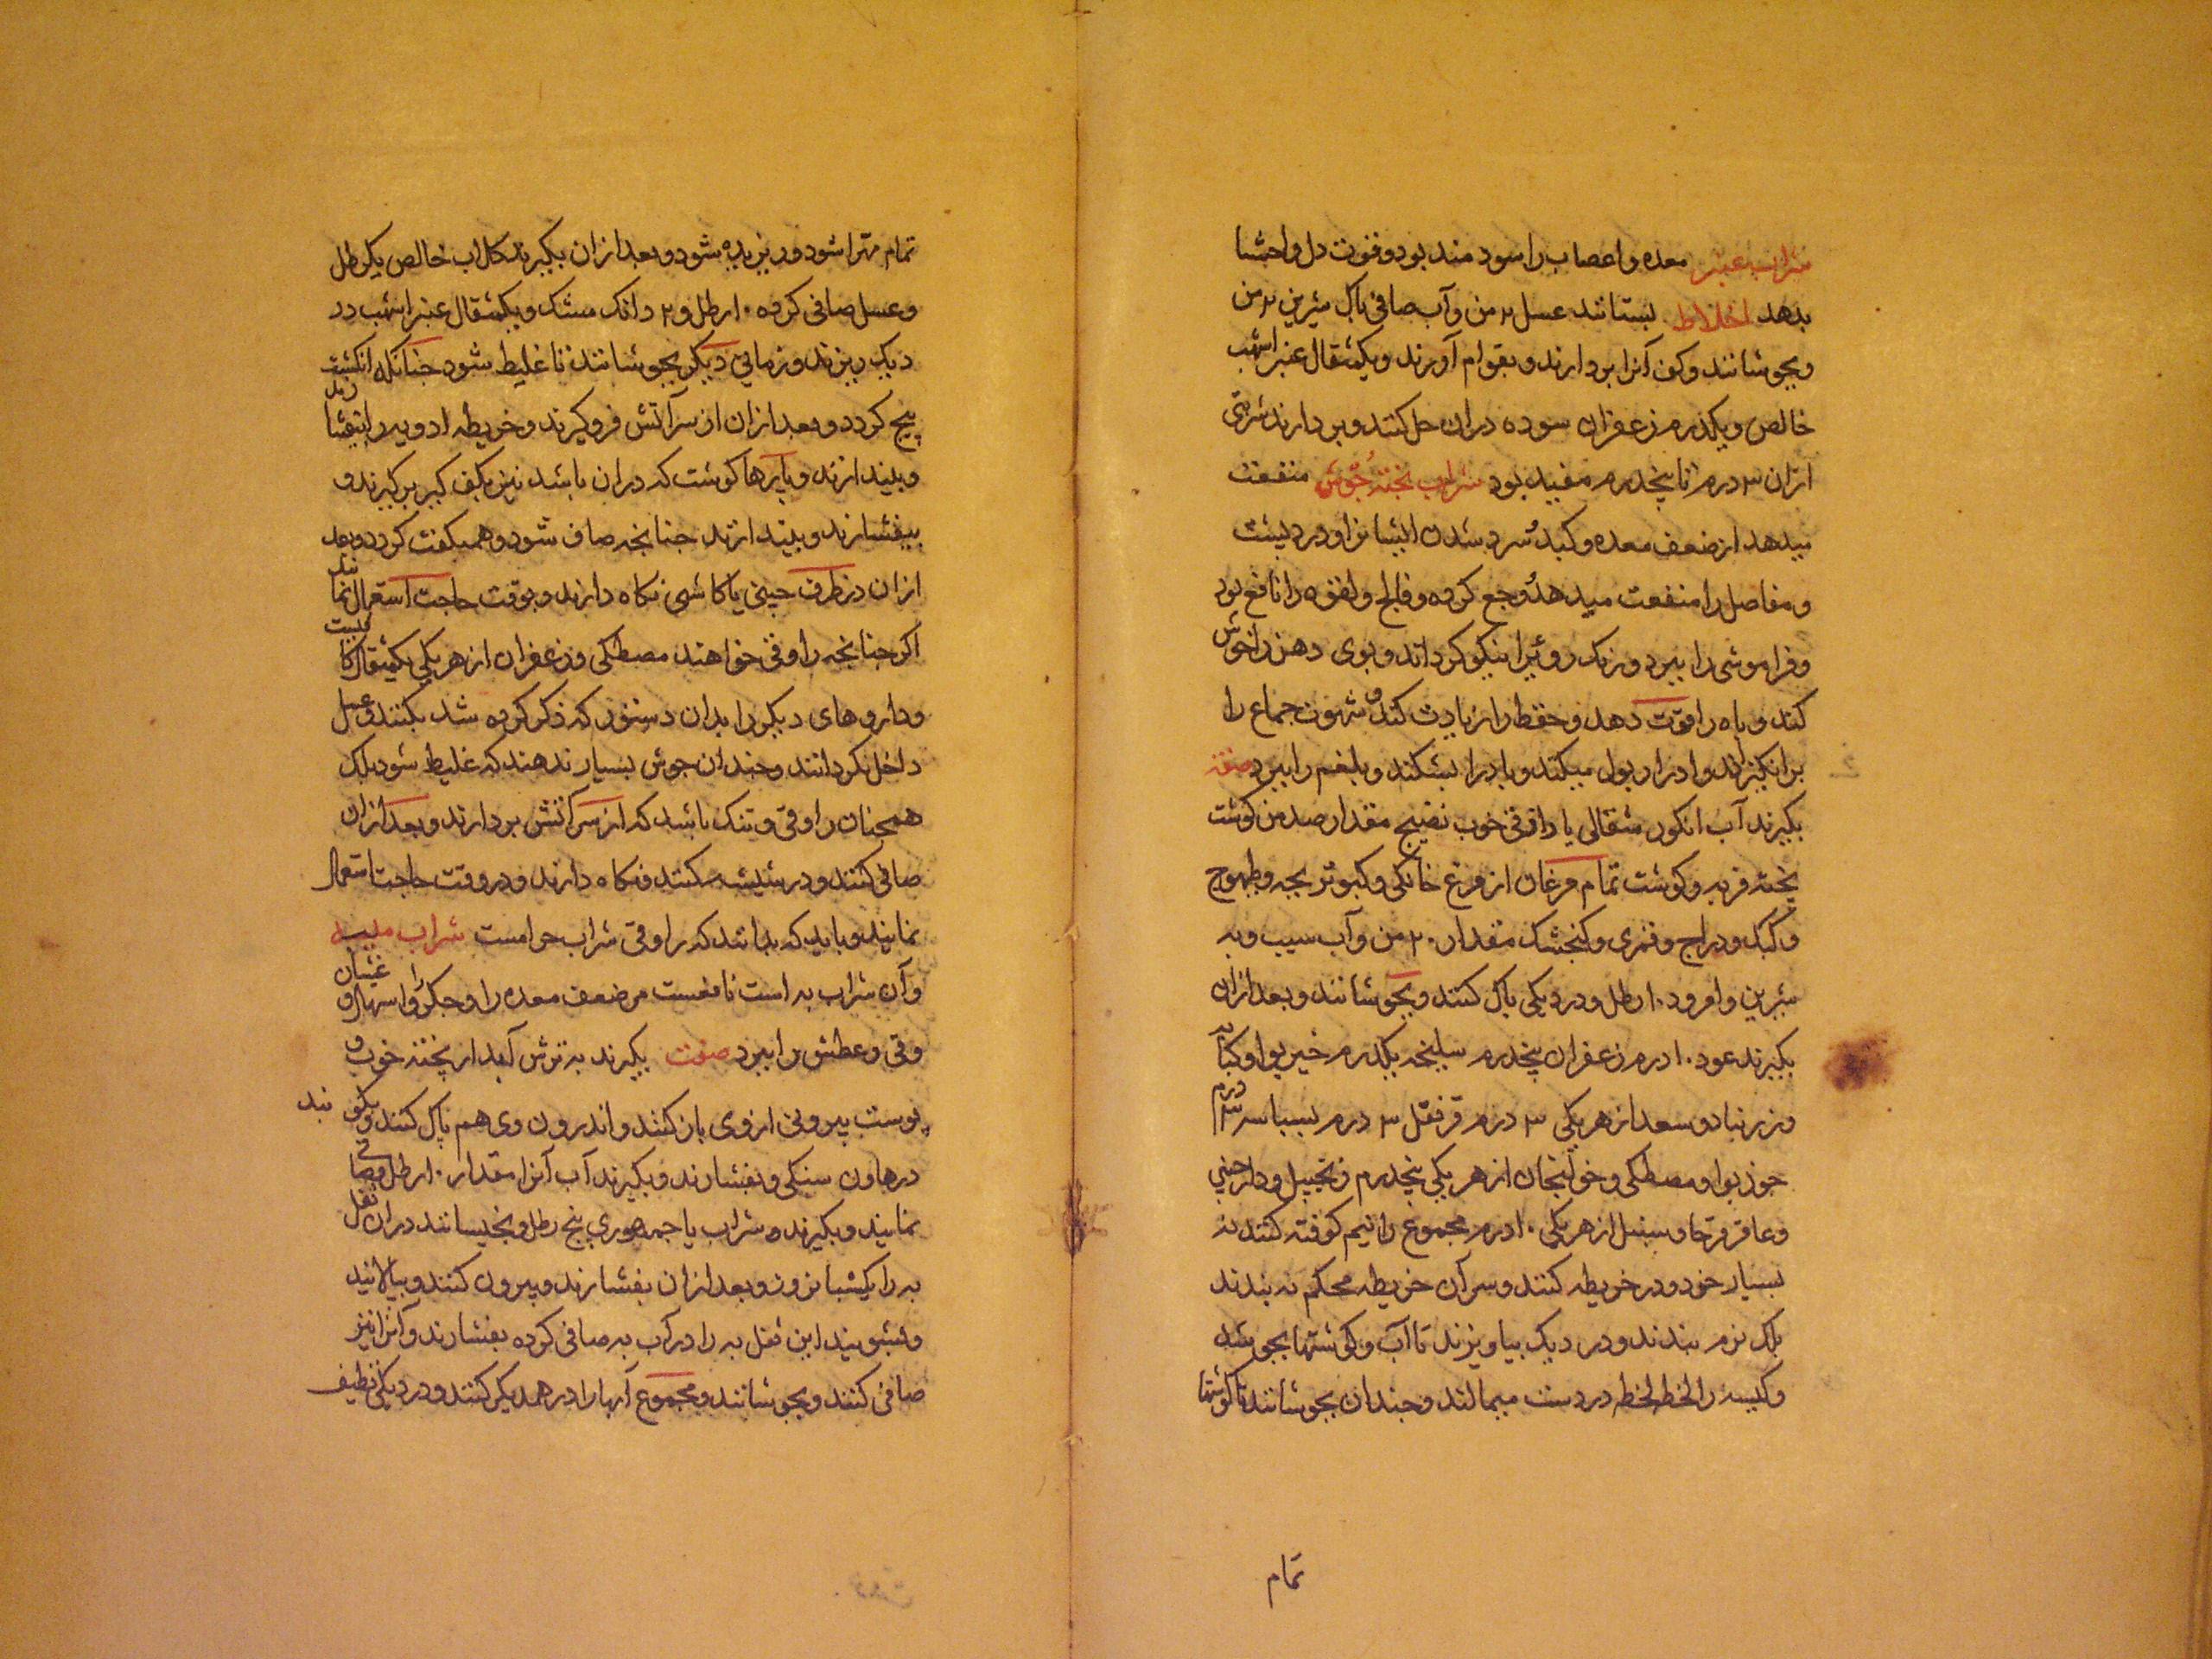 شراب عنبر معده و اعصاب را سود مند بود و قوت دل و احشا
بدهد اخلاط بستانند عسل ۲ من و آب صافی پاک شیرین ۲ من
و بجوشانند و کف آنرا بردارند و بقوام آورند و یکمثقال عنبر اشهب
خالص و یکدرم زعفران سوده دران حل کنند و بردارند شربتی
ازان ۳ درم تا پنجدرم مفید بود شراب پخته جوش منفعت
میدهد از ضعف معده و کبد و سرد شدن ایشانرا و درد پشت
و مفاصل را منفعت میدهد و جع کرده و فالج و لقوه را نافع بود
و فراموشی را ببرد و رنک روئیرا نیکو کرداند و بوی دهن را خوش
کند و باه را قوت دهد و حفظ را زیادت کند و شهوت جماع را
برانکیزاند و ادرار بول میکند و باد را بشکند و بلغم را ببرد صفته
بکیرند آب انکور مثقالی یا خوب نضیج مقدار صد من کوشت
پخته فربه و کوشت تمام مرغان از مرغ خانکی و کبوتر بچه و طیهوج
و کبک و دراج و قمری و کنجشک مقدار ۲۰ من و آب سیب و به
شیرین و امرود ۱۰ رطل و در دیکی پاک کنند و بجوشانند و بعد ازان
بکیرند عود ۱۰ درم زعفران پنجدرم سلیخه یکدرم خیربوا و کبابه
و زرنباد و سعد از هر یکی ۳ درم قرنفل ۳ درم بسباسه ۳ درم
جوزبوا و مصطکی و خولنجان از هر یکی پنجدرم زنجبیل و دارچینی
و عاقرقرحا و سنبل از هر یکی ۱۰ درم مجموع را نیم کوفته کنند نه
بسیار خرد و در خریطه کنند و سر آن خریطه محکم نه بندند
بلک نرم بندند و در دیک بیاویزند تا آب و کوشتها بجوشد
و کیسه را لخظ لخظه در دست میمالند و چندان بجوشانند تا کوشتها
تمام
تمام مهرا شود و ریزیده شود و بعد ازان بکیرند کلاب خالص یکرطل
و عسل صافی کرده ۱۰ رطل و ۲ دانک مشک و یکمثقال عنبر اشهب در
دیک ریزند و زمانی دیکر بجوشانند تا غلیظ شود چنانکه انکشت
پیچ کردد و بعد ازان از سر آتش فروکیرند و خریطه ادویه را بیفشارند
و بیندازند و پارها کوشت که دران باشد نیز بکف کیر برکیرند و
بیفشارند و بیندازند چنانچه صاف شود و همیکفت کردد و بعد
ازان در ظرف چینی یا کاشی نکاه دارند و بوقت حاجت استعمال نمایند
اکر چنانچه راوقی خواهند مصطکی و زعفران از هر یکی یکمثقال کافیست
و داروهای دیکر را بدان دستور که ذکر کرده شد بکنند و عسل
داخل نکردانند و چندان جوش بسیار ندهند که غلیظ شود بلک
همچنان راوقی و تنک باشد که از سر آتش بردارند و بعد ازان
صافی کنند و در شیشه کنند و نکاه دارند و در وقت حاجت استعمال
نمایند و باید که بدانند که راوقی شراب حرامست شراب میبه
و آن شراب به است نافعست مر ضعف معده را و جکر را و اسهال و غشیان
و قی و عطش را ببرد صفت بکیرند به ترش آبدار پخته خوب و
پوست بیرونی ازوی باز کنند و اندرون وی هم پاک کنند و بکوبند
در هاون سنکی و بفشارند و بکیرند آب آنرا مقدار ۱۰ رطل و صافی
نمایند و بکیرند شراب یا جمهوری پنج رطل و بخیسانند دران ثفل
به را یکشبانروز و بعد ازان بفشارند و بیرون کنند و بپالایند
و بشویند این ثفل به را در آب به صافی کرده بفشارند و آنرا نیز
صافی کنند و بجوشانند و مجموع آبها را در همدیکر کنند و در دیکی نظیف